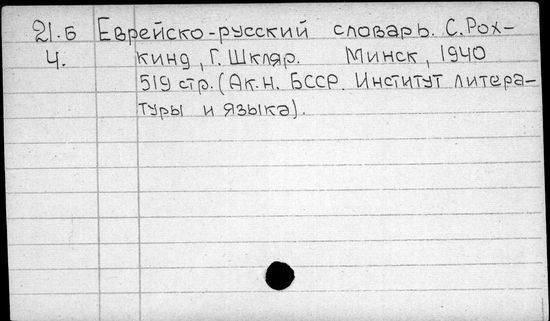 21.Б Еврейско-русский словарь. С.Рох-
4. кинд, Г. Шкляр. Минск, 1940
519 стр. (Ак.н. БССР. Институт литера-
туры и языка).